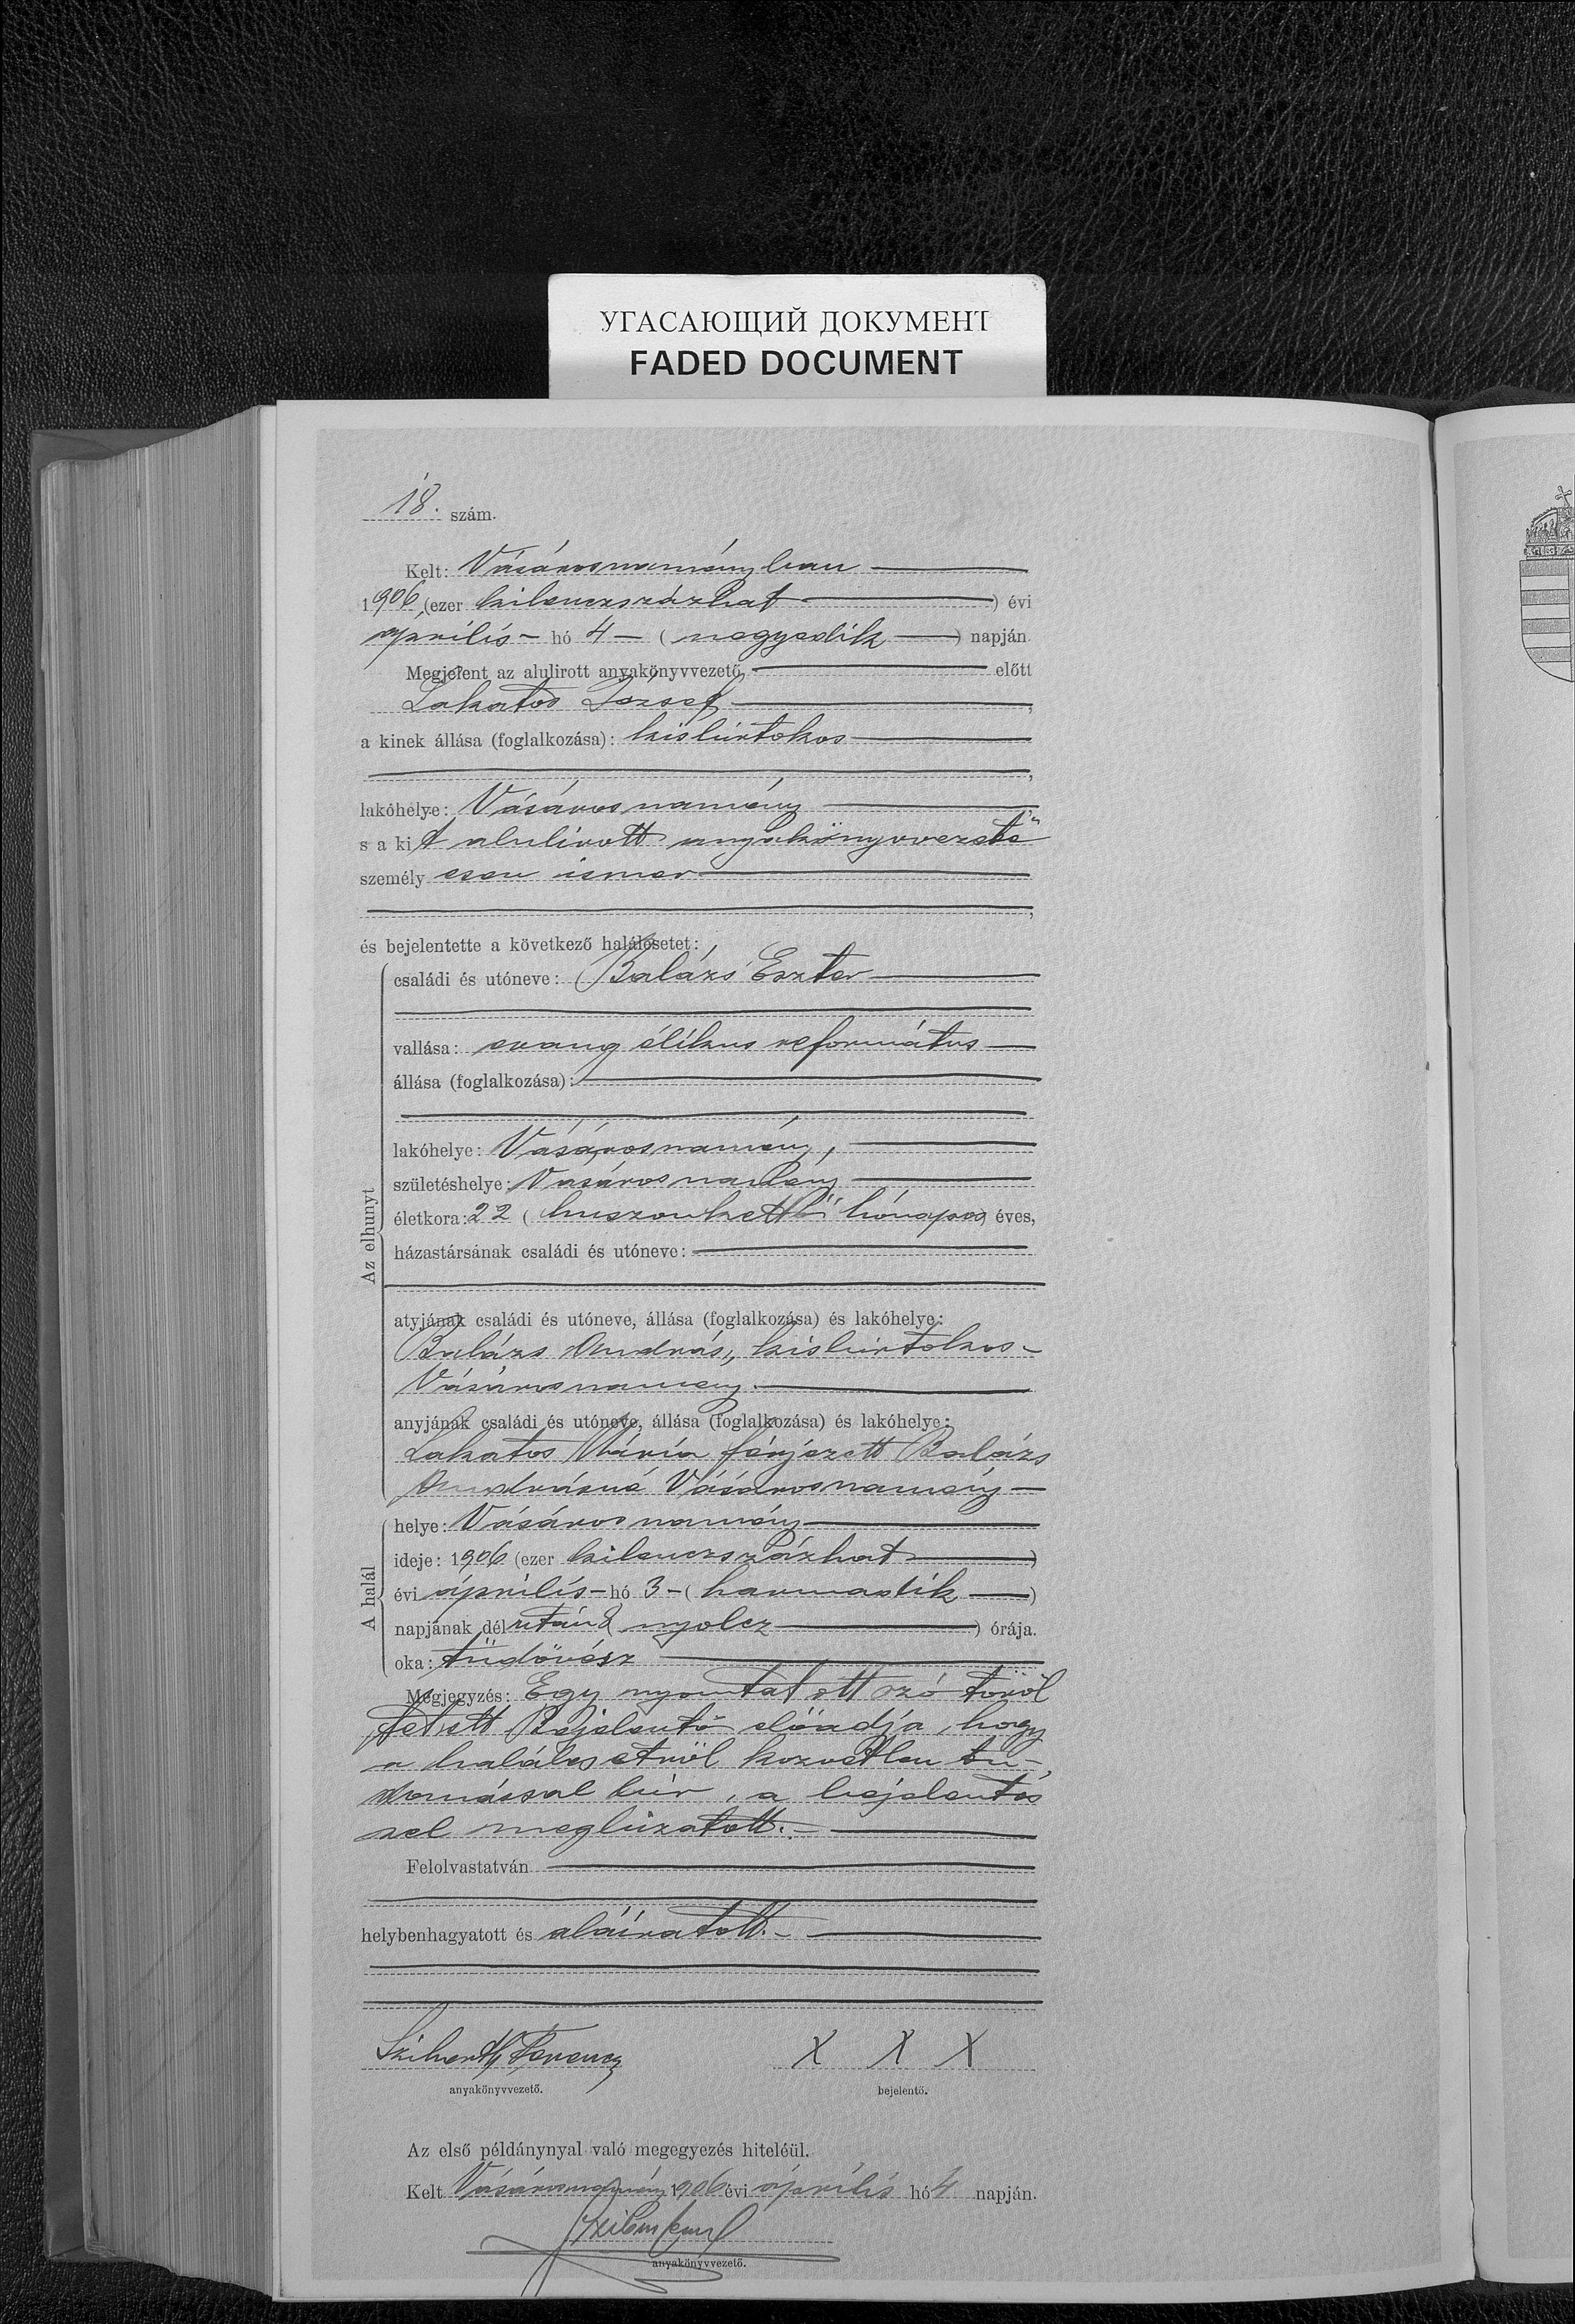 УГАСАЮЩИЙ ДОКУМЕНТ
FADED DOCUMENT
18. szám.
Kelt: Vásárosnaményban
1906 (ezer kilenczszázhat) évi
április hó 4 (negyedik) napján.
Megjelent az alulirott anyakönyvvezető előtt
Lakatos József,
a kinek állása (foglalkozása): kisbirtokos
,
lakóhelye: Vásárosnamény
s a kit alulirott anyakönyvvezető
személyesen ismer
,
és bejelentette a következő halálesetet:
Az elhunyt
családi és utóneve: Balázs Eszter
vallása: evangélikus református
állása (foglalkozása):
lakóhelye: Vásárosnamény,
születéshelye: Vásárosnamény
életkora: 22 (huszonkettő hónapos) éves,
házastársának családi és utóneve:
atyjának családi és utóneve, állása (foglalkozása) és lakóhelye:
Balázs András, kisbirtokos -
Vásárosnamény.
anyjának családi és utóneve, állása (foglalkozása) és lakóhelye:
Lakatos Mária férjezett Balázs
Andrásné Vásárosnamény -
A halál
helye: Vásárosnamény
ideje: 1906 (ezer kilenczszázhat)
évi április - hó 3 - (harmadik)
napjának délután 8 nyolcz) órája.
oka: tüdővész
Megjegyzés: Egy nyomtatott szó töröl
tetett Bejelentő előadja, hogy
a halálesetről közvetlen tu-
domással bir, a bejelentés
sel megbizatott. -
Felolvastatván
helybenhagyatott és aláiratott. -
Ferencz X X X
anyakönyvvezető. bejelentő.
Az első példánynyal való megegyezés hiteléül.
Kelt Vásárosnamény 1906 évi április hó 4 napján.
anyakönyvvezető.